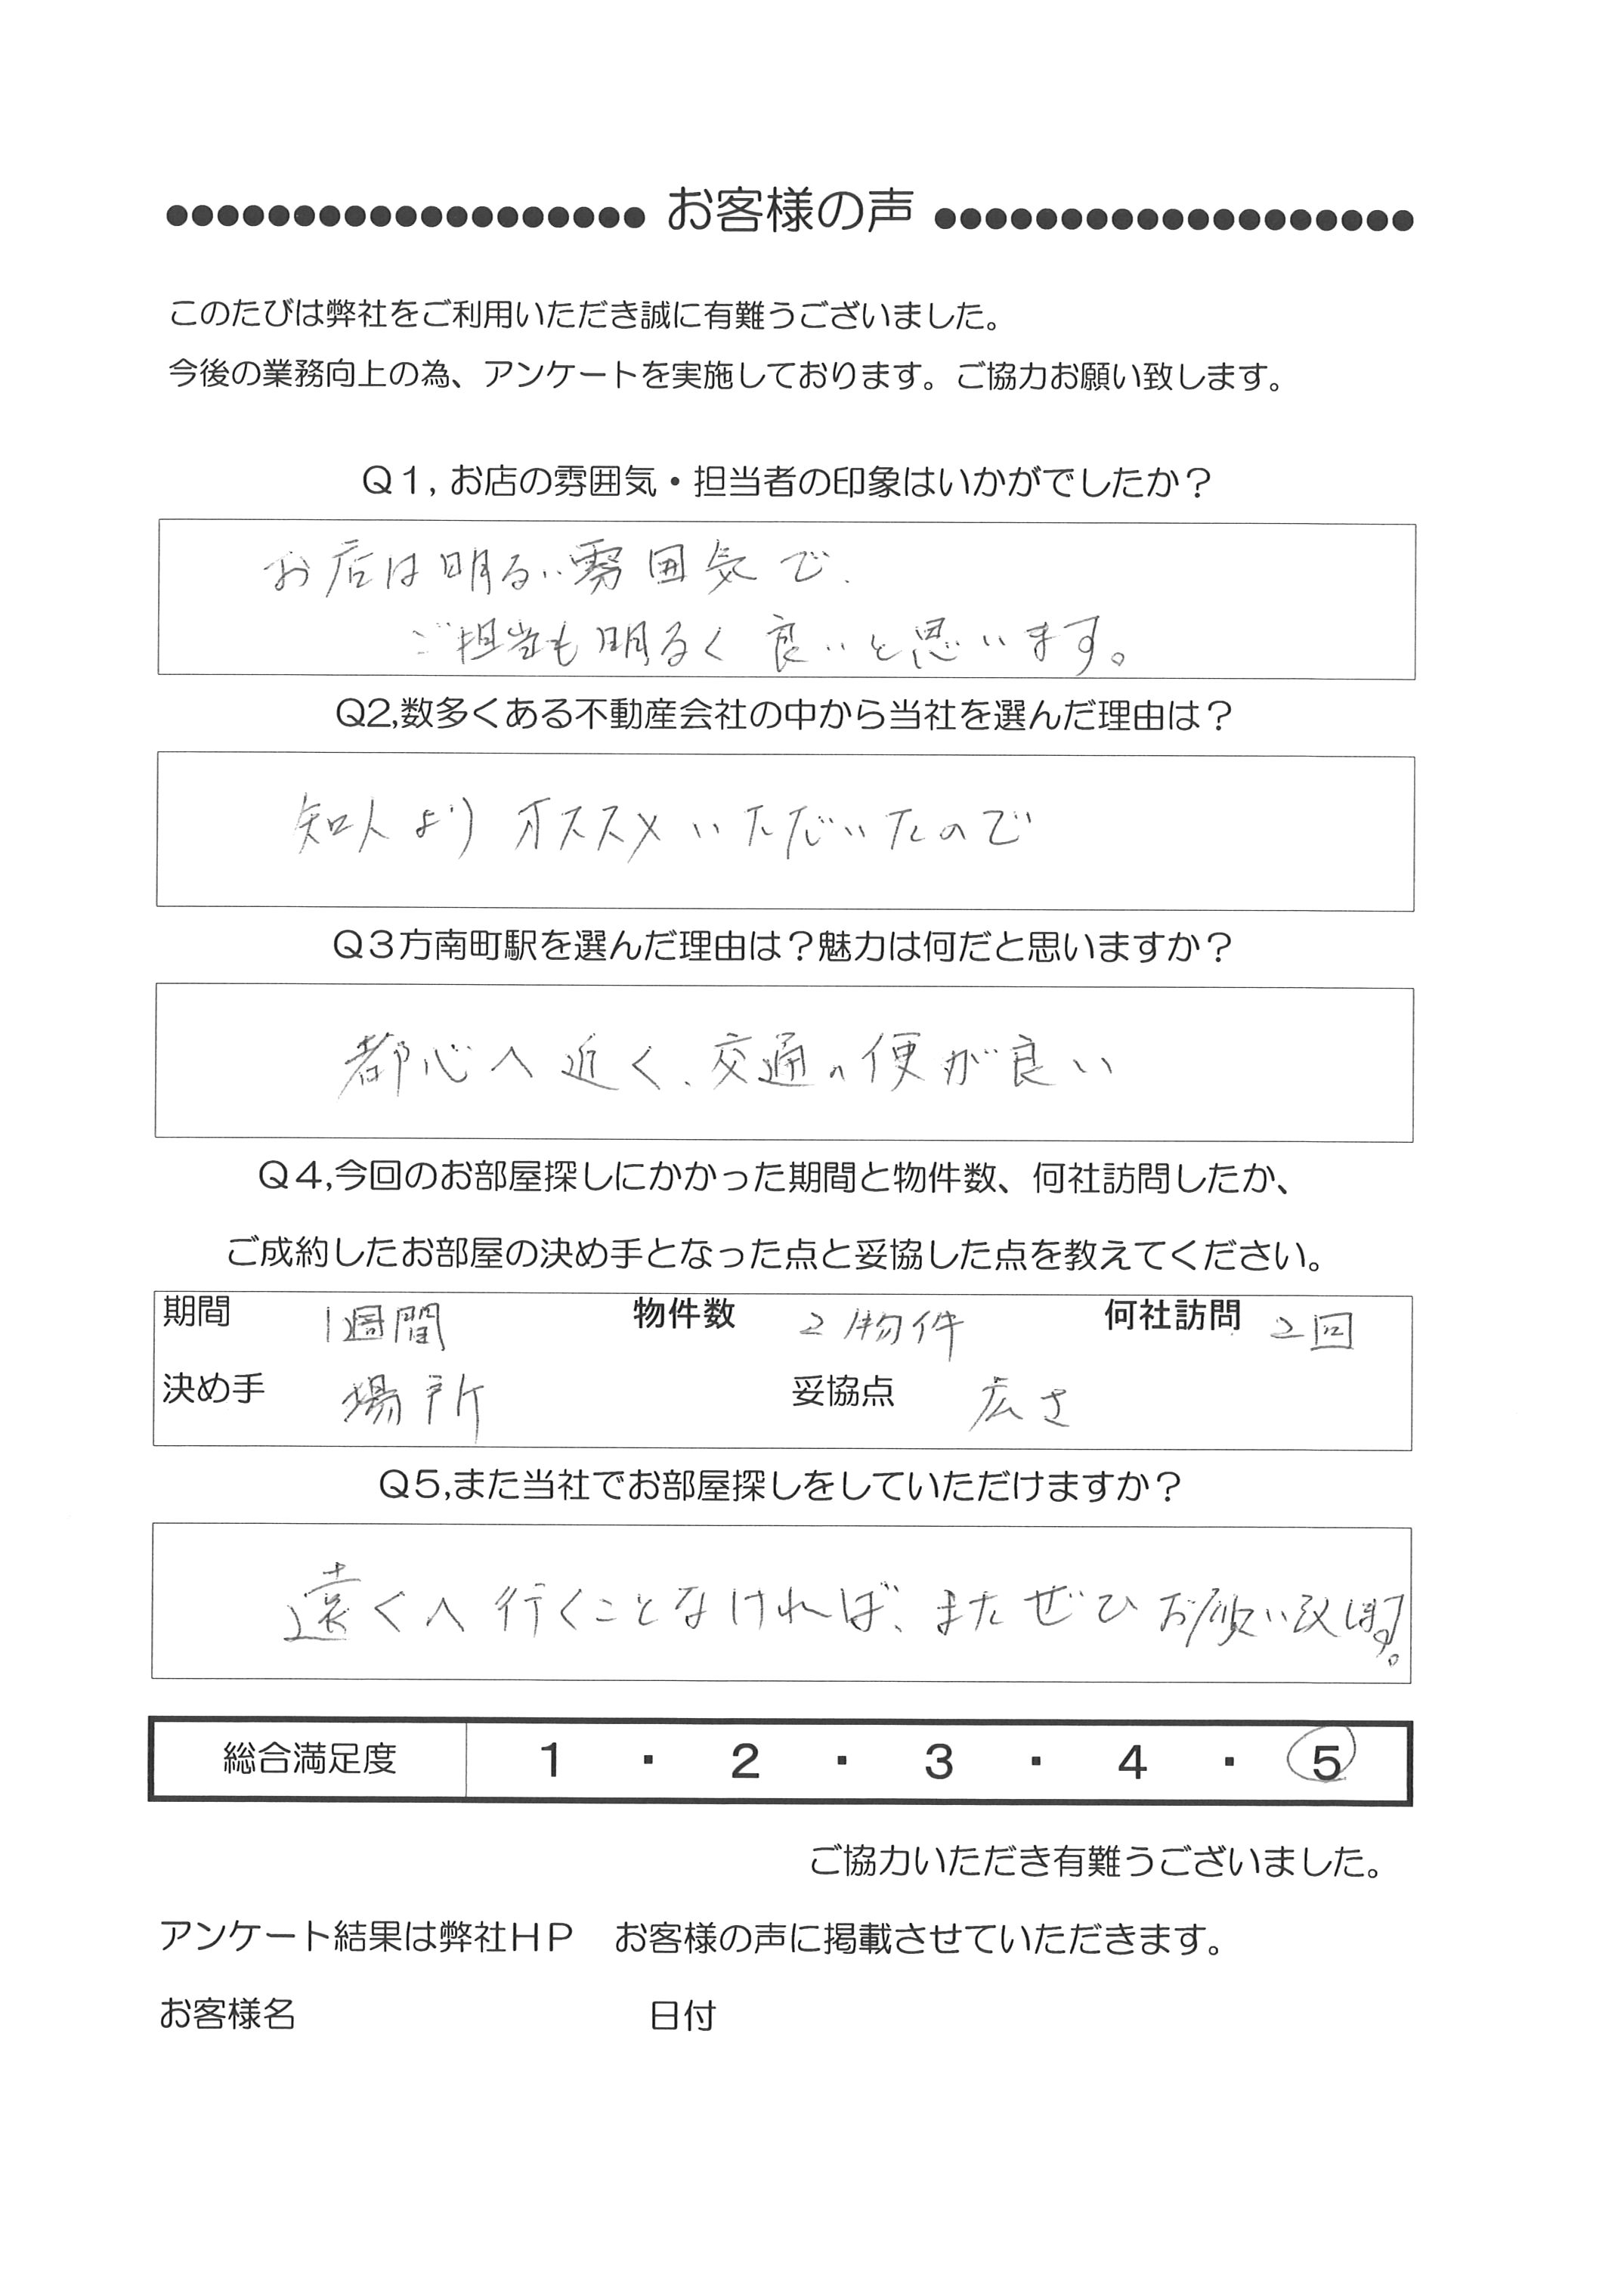 ●●●●●●●●●●●●●●●●●●● お客様の声 ●●●●●●●●●●●●●●●●●●●
このたびは弊社をご利用いただき誠に有難うございました。
今後の業務向上の為、アンケートを実施しております。ご協力お願い致します。
Q1, お店の雰囲気・担当者の印象はいかがでしたか？
お店は明るい雰囲気で、
ご担当も明るく良いと思います。
Q2,数多くある不動産会社の中から当社を選んだ理由は？
知人よりオススメいただいたので
Q3方南町駅を選んだ理由は？魅力は何だと思いますか？
都心へ近く、交通の便が良い
Q4,今回のお部屋探しにかかった期間と物件数、何社訪問したか、
ご成約したお部屋の決め手となった点と妥協した点を教えてください。
期間 1週間 物件数 2物件 何社訪問 2回
決め手 場所 妥協点 広さ
Q5,また当社でお部屋探しをしていただけますか？
遠くへ行くことなければ、またぜひお願い致します。
総合満足度 1 ・ 2 ・ 3 ・ 4 ・ 5
ご協力いただき有難うございました。
アンケート結果は弊社HP　お客様の声に掲載させていただきます。
お客様名 日付